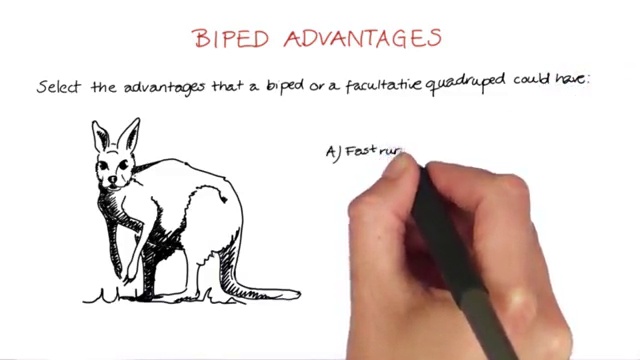 BIPED ADVANTAGES
Select the advantages that a biped or a facultative quadruped could have:
A) Fast run